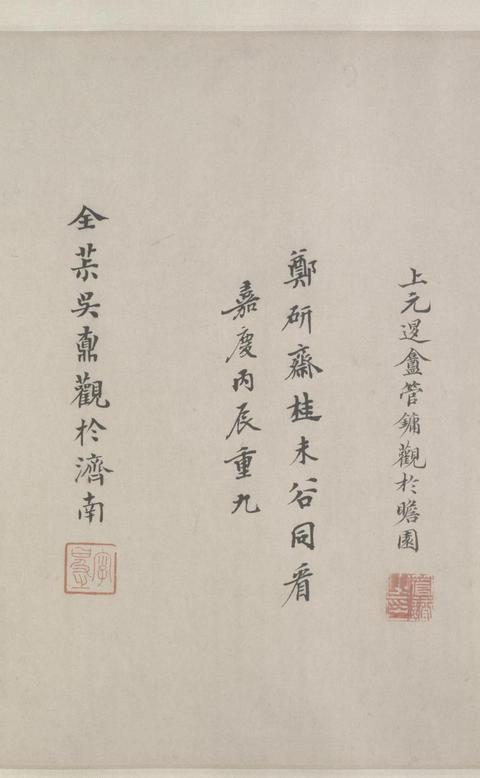 上元邈盦管鏞觀於瞻園
鄭研齋桂未谷同看
嘉慶丙辰重九
全茮吳鼒觀於濟南